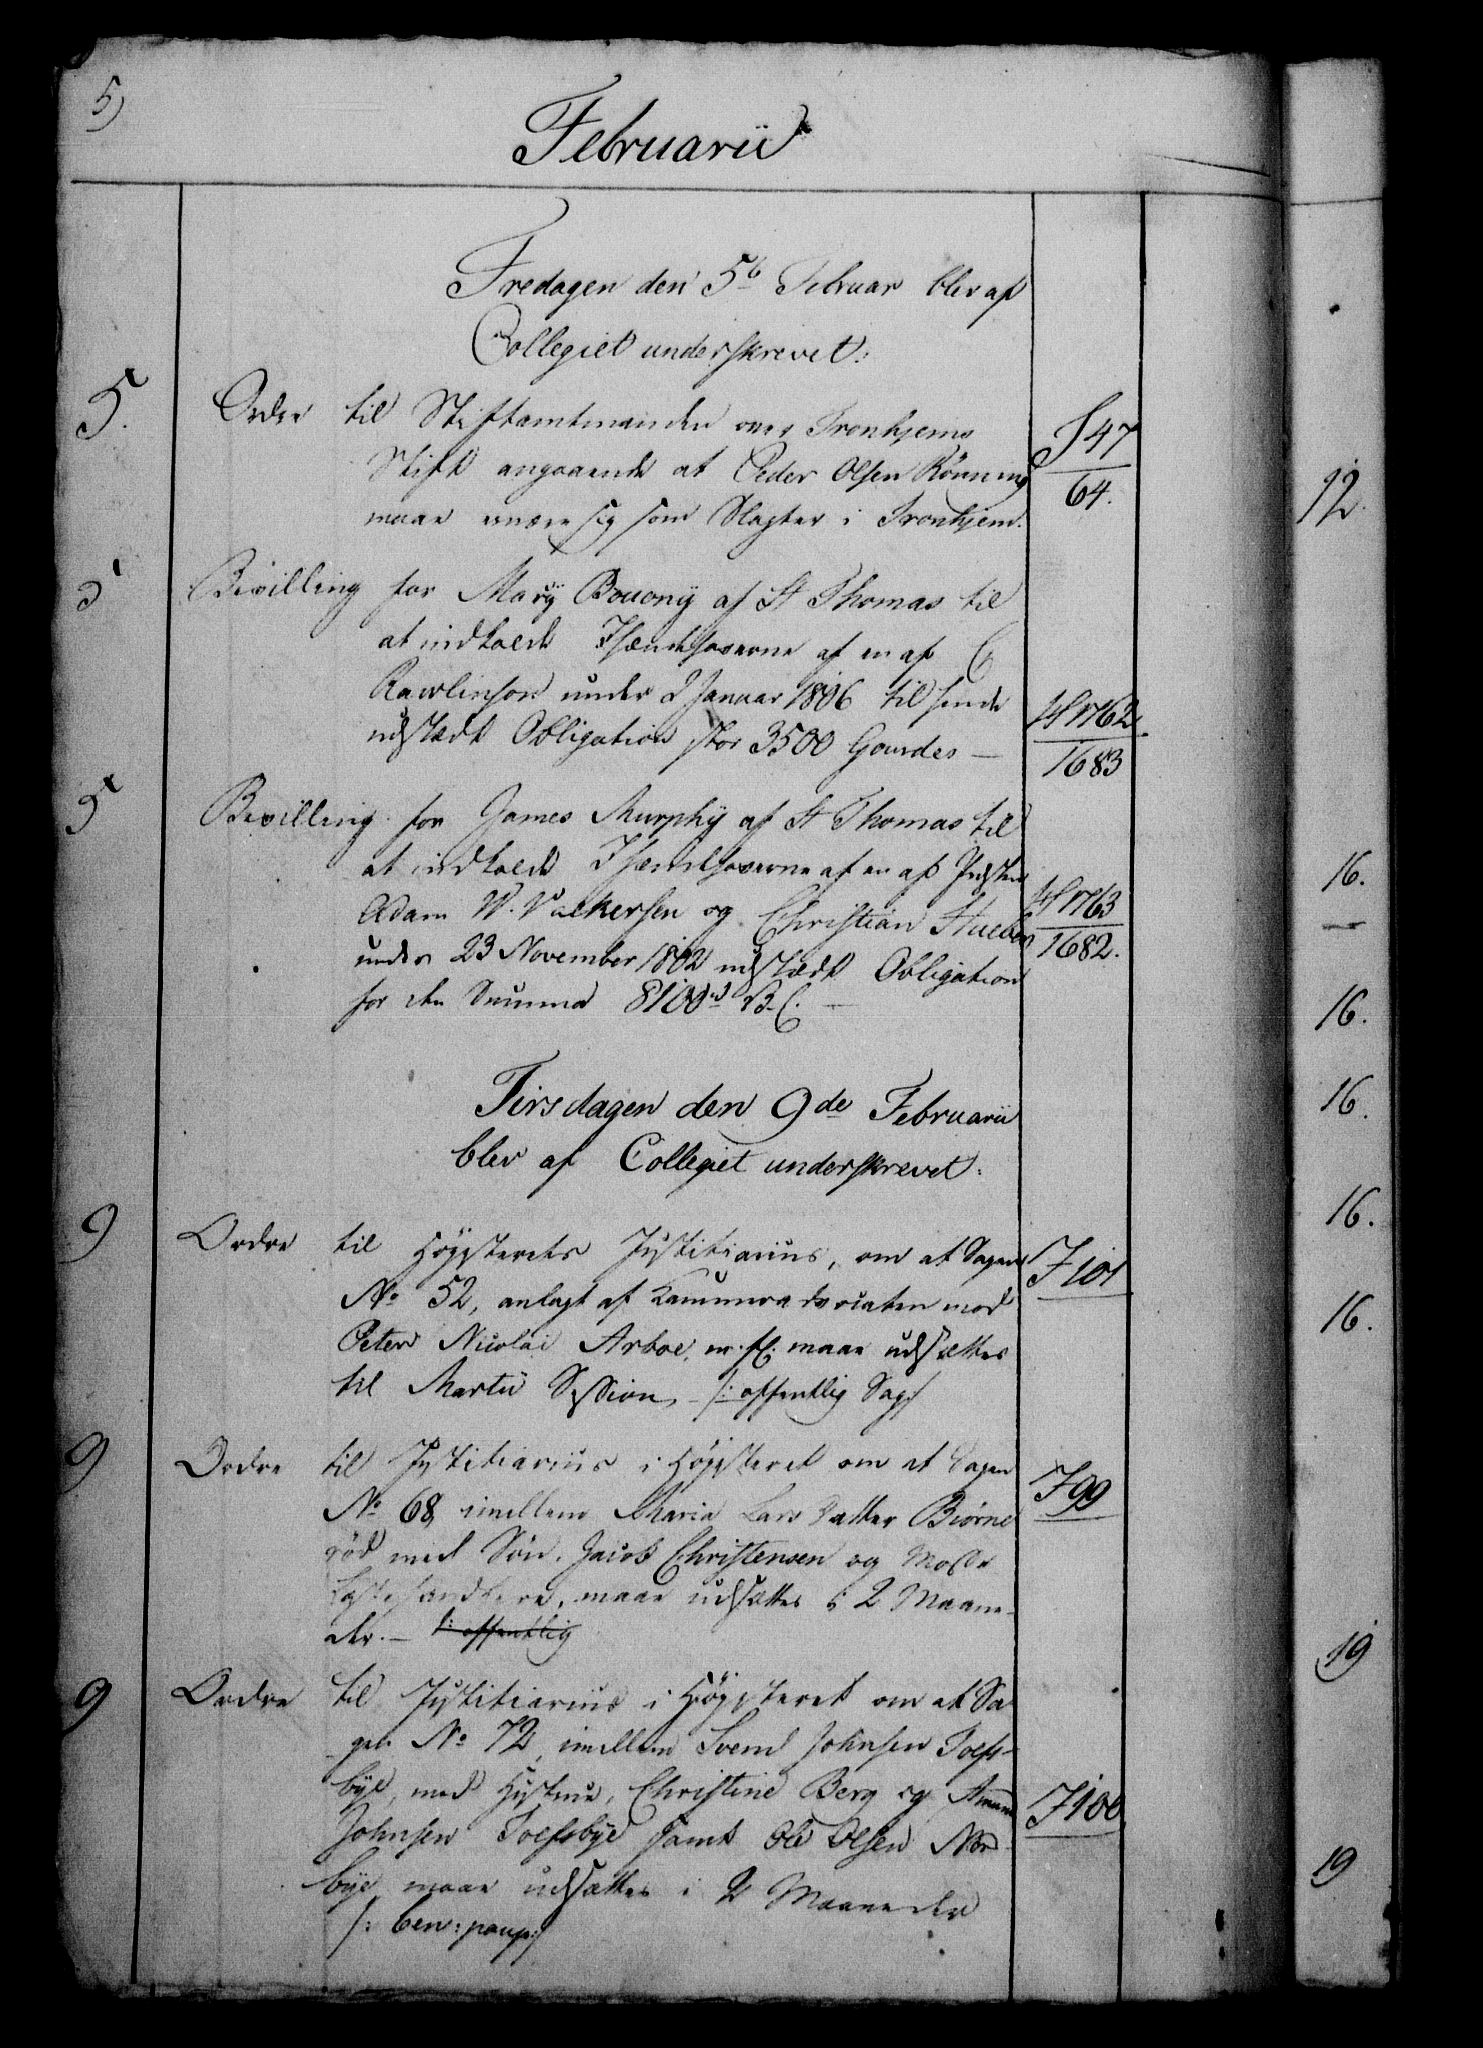 5)
Februarii
Fredagen den 5t Februar blev af
Collegiet underskrevet:
5. Ordre til Stiftamtmanden over Tronhjems
Stift angaaende at Peder Olsen Rönning
maae ernære sig som Slagter i Tronhjem.
S 47
64.
5 Bevilling for Marÿ Bouonÿ af St Thomas til
at indkalde Ihændehaverne af en af C
Rawlinson under 2 Januar 1806 til hende
udstædt Obligation stor 3500 Gourdes —
W 1762.
1683
5 Bevilling for James Murphÿ af St Thomas til
at indkalde Ihændehaverne af en af
Adam W. Valkersen og Christian Stueber
under 23 November 1802 udstædt Obligation
for den Summa 8100 rd V. C. —
W 1763
1682.
Tirsdagen den 9de Februarii
blev af Collegiet underskrevet:
9 Ordre til Höÿesterets Justitiarius, om at Sagen
No 52, anlagt af Kammeradvocaten mod
Peter Nicolai Arboe, m. fl. maae udsættes
til Martii Session, /: offentlig Sag :/
J 101
9 Ordre til Justitiarius i Höÿesteret om at Sagen
No 68, imellem Maria Lars Datter Biørne
röd med Sön, Jacob Christensen og Moss
Lastehandlere, maae udsættes i 2 Maane-
der. — /: offentlig
J 99
9 Ordre til Justitiarius i Höÿesteret om at Sa
gen No 72, imellem Svend Johnsen Tolfs-
bÿe, med Hustrue, Christine Berg og Amund
Johnsen Tolfsbÿe samt Ole Olsen Nor
bÿe maae udsættes i 2 Maaneder
/: ben: paup: /
J 100
12.
16.
—
16.
16.
16.
16.
19
19